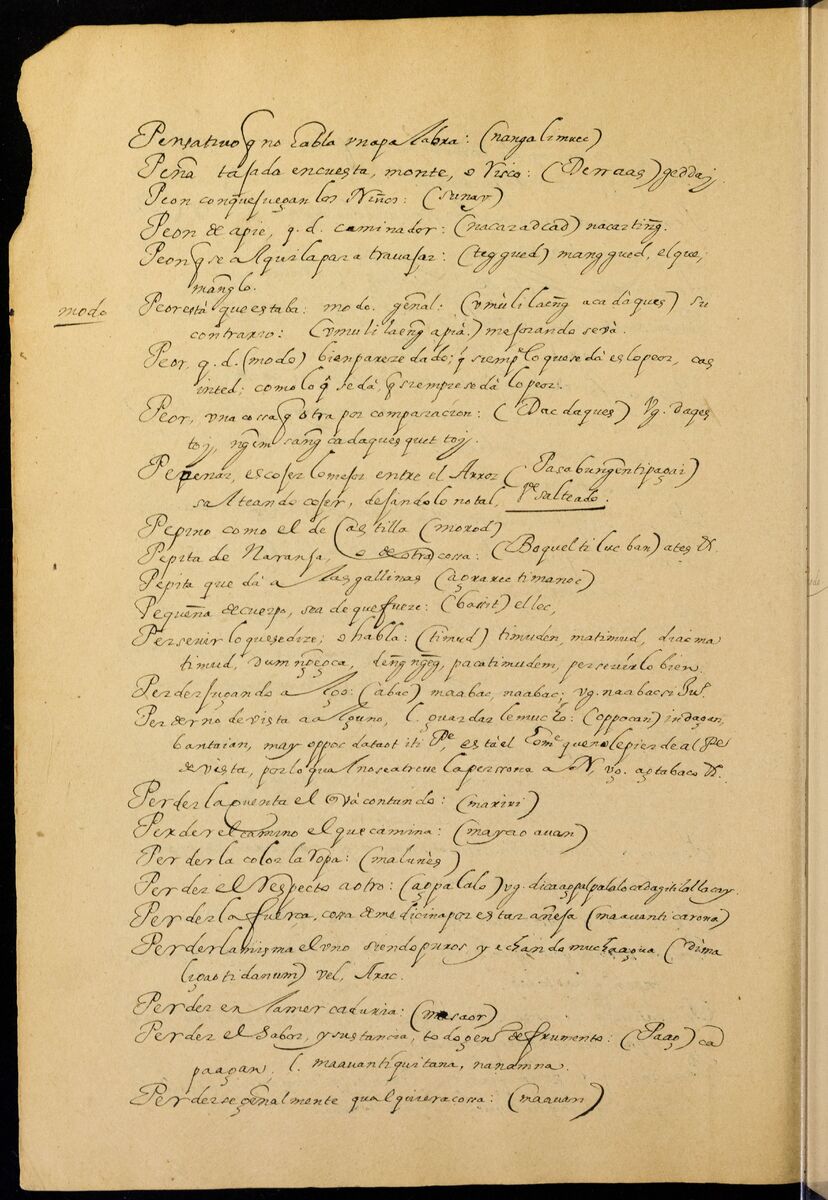 Pensativo q̃ no habla vna palabra: (nangalimuec)
Peña tasada en cuesta, monte, o Risco: (Derraas) geddaij.
Peon conque juegan los Niños: (sunay)
Peon de apie, q. d. caminador: (nacaradcad) nacarting̃.
Peon q̃ se alquila para travajar: (teggued) manggued, el que,
mang̃lo.
modo
Peor està que estaba: modo. gen̄al: (vmulilaeng̃ acadàques) su
contrario: (vmulilaeng̃ apià.) mejorando se và.
Peor, q. d. (modo) bien pareze dado; q̃ siempʳᵉ lo que se dà es lo peor, cas
inted; como lo q̃ se dà, q̃ siempre se dà lo peor.
Peor, vna cossa q̃ otra por comparacion: (Dac daques) Vg. daques
toij, ng̃em sang̃cadaques quet toij.
Pepenar, escojer lo mejor entre el Arroz (Pasabung̃entipagai)
salteando cojer, dejandolo no tal, Vᵈᵉ salteado.
Pepino como el de Castilla (morod)
Pepita de Naranja, o de otra cossa: (Boquel ti lucban) ates &.
Pepita que dà a las gallinas (agrarec timanoc)
Pequeña de cuerpo, sea de que fuere: (bassit) ellec,
Perseuir lo que se dize; o habla: (timud) timuden, matimud, diacma
timud, Dumng̃egca, deng̃ng̃eg, pacatimudem, perseuirlo bien.
Perder jugando a lgo: (abac) maabac, naabac; vg. naabac si Juº.
Perder no de vista a alguno, l. guardarle mucho: (oppocan) indagan,
bantaian, may oppoc dataot iti Pᵉ, està el home que no le pierde al Pᵉ
de vista, por lo qual no se atreve la persona a N, vg. agtabaco &.
Perder la quenta el q̃ và contando: (mariri)
Perder el camino el que camina: (maycao auan)
Perder la color la ropa: (malunès)
Perder el Respecto a otro: (agpalalo) vg. dicaagpalpalalo cadagiti lallacay.
Perder la fuerça, cosa de medicina por estar añeja (maauanti carona)
Perder la misma el vno siendo puros y echando mucha agua (dima
ligaoti danum) vel, Arac.
Perder en la mercaduria: (masaor)
Perder el sabor, y sustancia, todo genº de frumento: (Paag) ca
paagan, l. maauanti quitana, nanamna.
Perderse gen̄almente qualquiera cossa: (maauan)